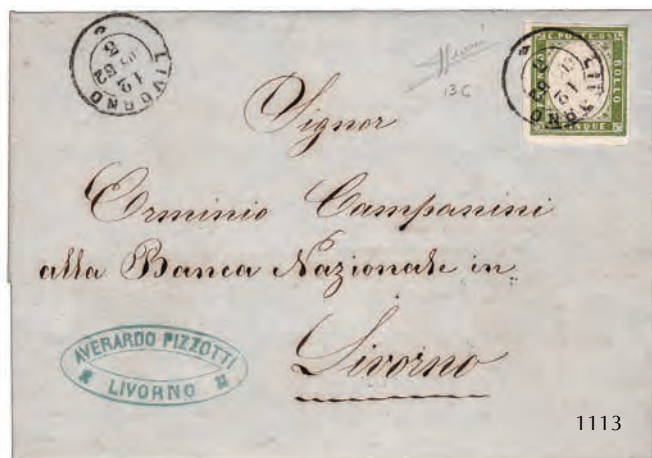 LIVORNO
12
62
13 C
C. POSTE. BOLLO
LIVORNO
12
Signor
Erminio Campanini
alla Banca Nazionale in
Livorno
AVERARDO PIZZOTTI
LIVORNO
1113